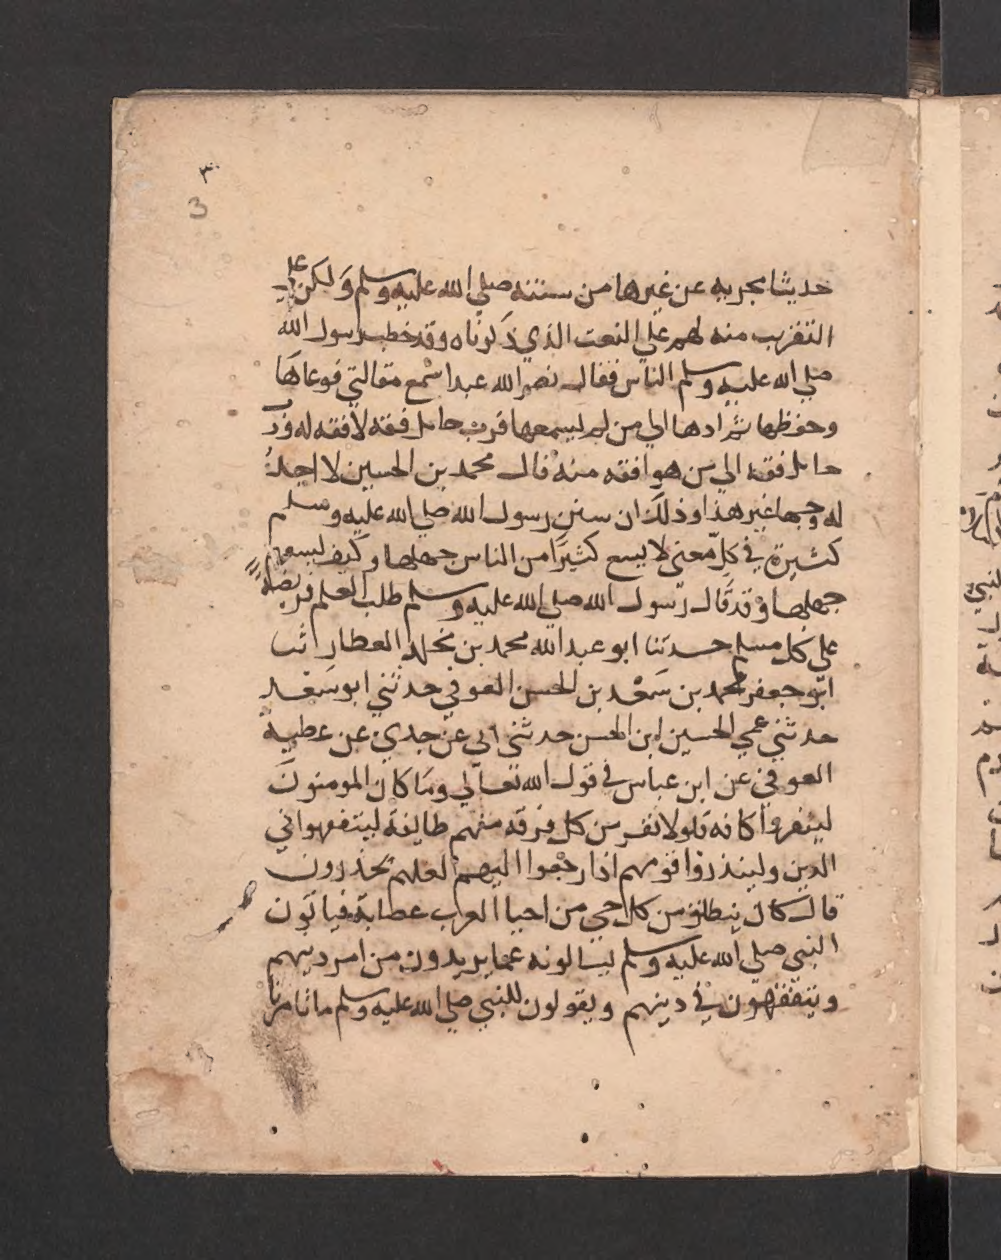 ٣
3
حديثا يجريه عن غيرها من سنته صلي الله عليه وسلم ولكن علي
التقرب منه لهم علي النعت الذي ذكرناه وقد خطب رسول الله
صلي الله عليه وسلم الناس فقال نضر الله عبدا سمع مقالتي فوعاها
وحفظها ثم اداها الي من لم يسمعها فرب حامل فقه لا فقه له ورب
حامل فقه الي من هو افقه منه قال محمد بن الحسين لا اجد
له وجها غير هذا وذلك ان سنن رسول الله صلي الله عليه وسلم
كثيرة في كل معني لا يسع كثيرا من الناس جهلها وكيف يسعهم
جهلها وقد قال رسول الله صلي الله عليه وسلم طلب العلم فريضة
علي كل مسلم حدثنا ابو عبد الله محمد بن مخلد العطار انبا
ابو جعفر محمد بن سعد بن الحسن العوفي حدثني ابو سعد
حدثني عمي الحسين ابن الحسن حدثني ابي عن جدي عن عطية
العوفي عن ابن عباس في قول الله تعالي وما كان المومنون
لينفروا كافه فلولا نفر من كل فرقه منهم طايفة ليتفقهوا في
الدين ولينذروا قومهم اذا رجعوا اليهم لعلهم يحذرون
قال كان ينطلق من كل حي من احيا العرب عصابة فياتون
النبي صلي الله عليه وسلم ليسالونه عما يريدون من امر دينهم
ويتفقهون في دينهم ويقولون للنبي صلي الله عليه وسلم ما تامرنا